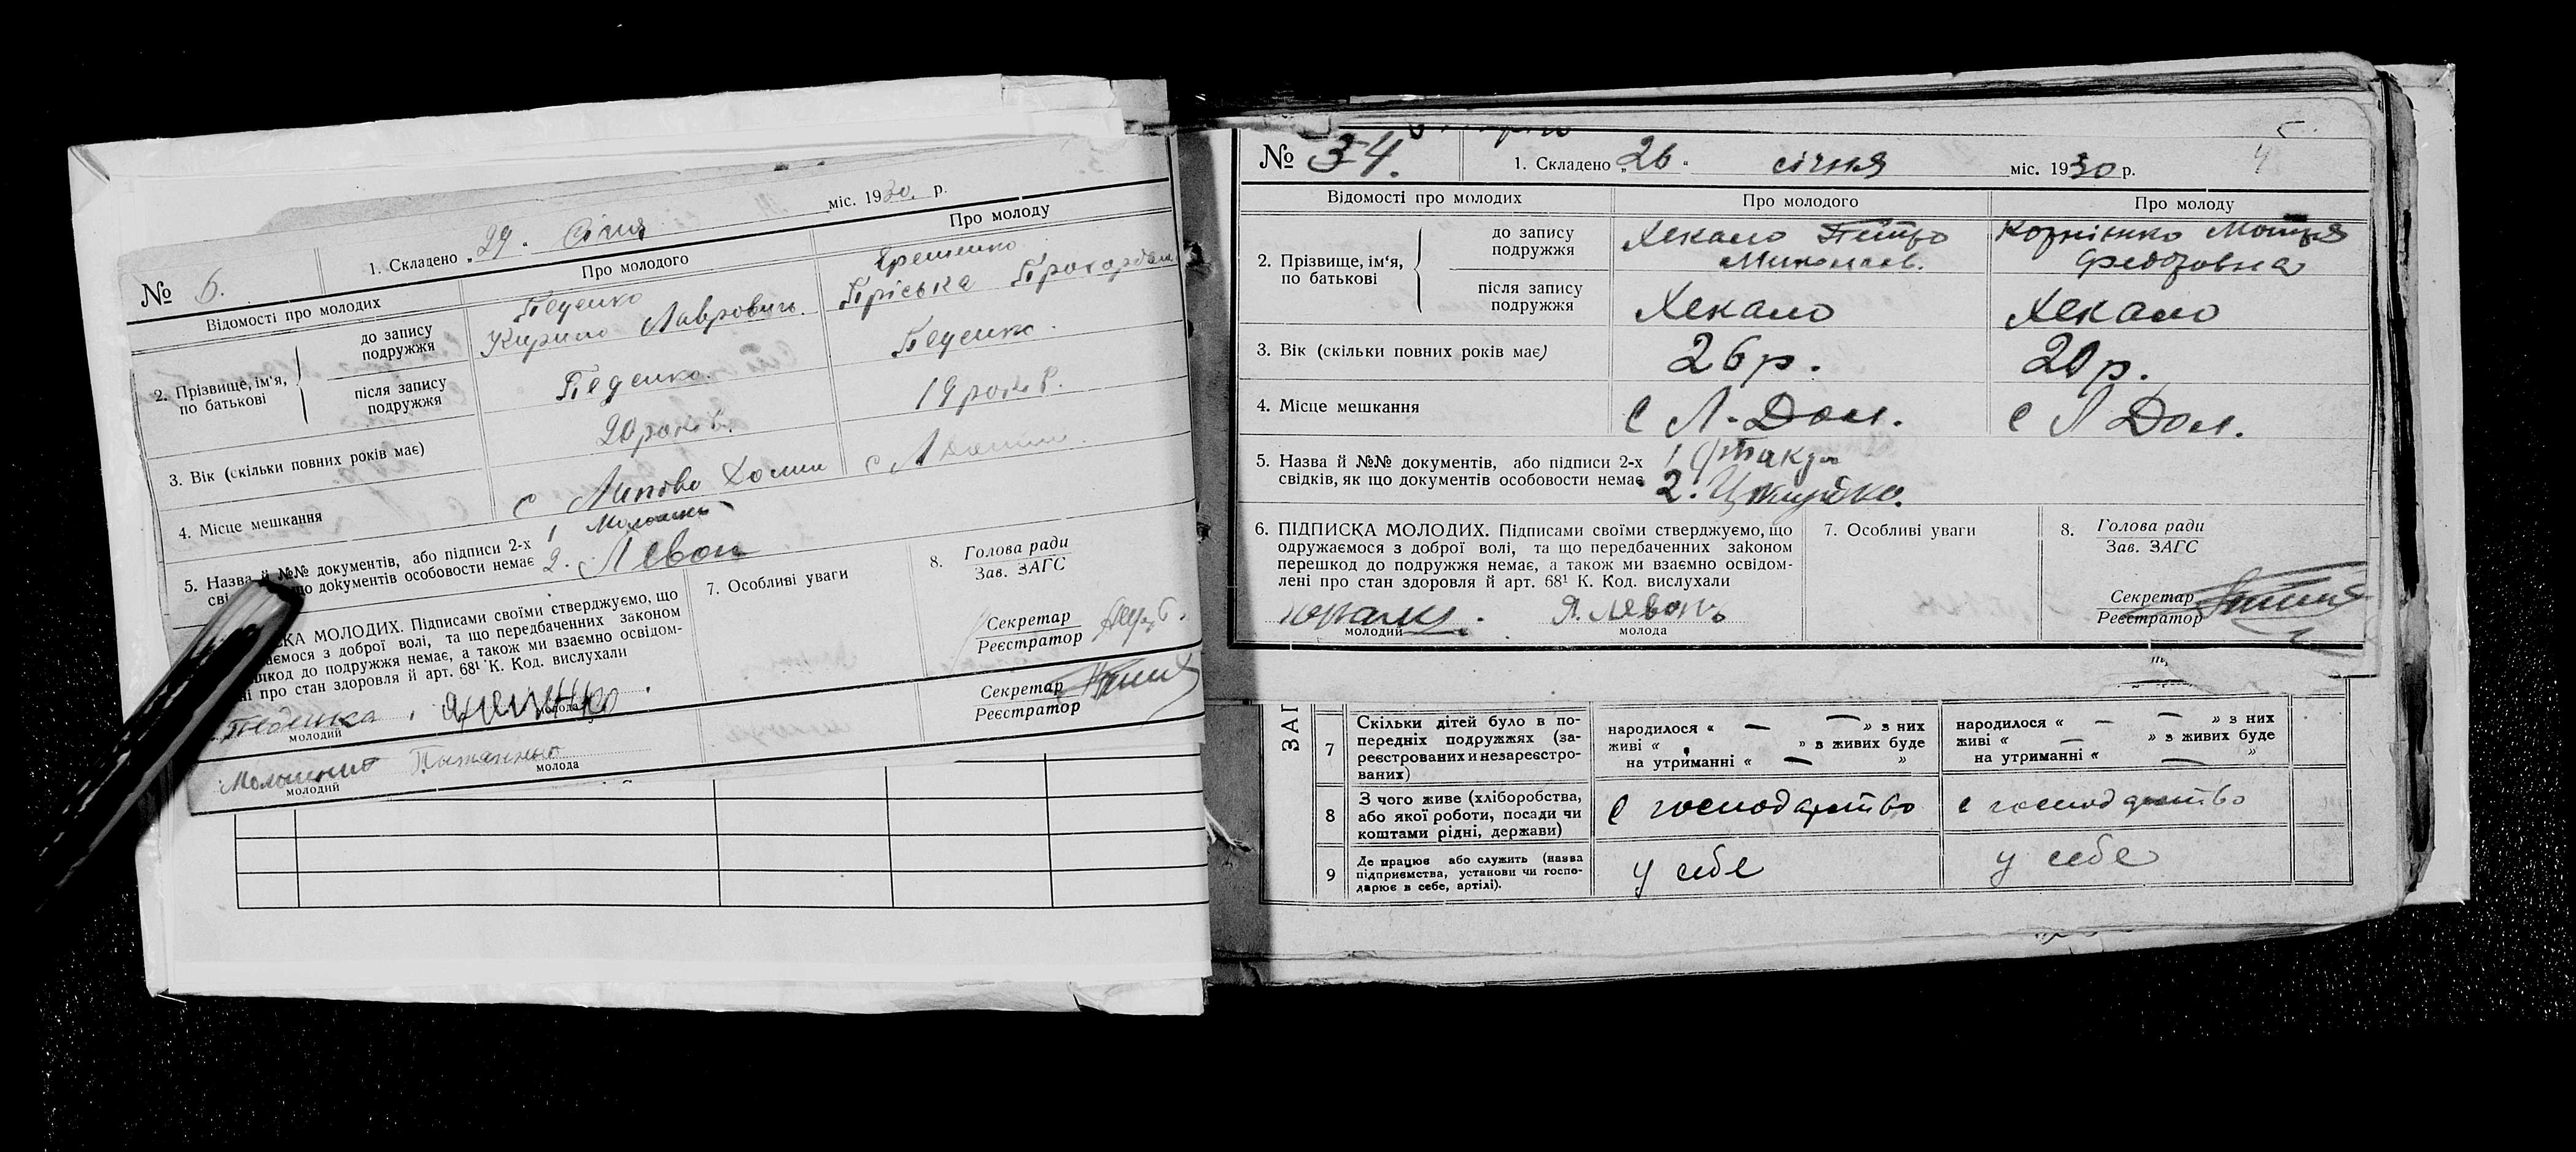 № 6.
1. Складено „29. Січня міс. 1930. р.
Відомості про молодих
Про молодого
Про молоду
2. Прізвище, ім'я, по батькові
до запису подружжя
Педенко
Кирило Лаврович.
Єременко
Пріська
після запису подружжя
Педенко.
Педенко.
3. Вік (скільки повних років має)
20 років.
19 років.
4. Місце мешкання
с Липова Долина
с Л Долина.
5. Назва й №№ документів, або підписи 2-х
1
2. Левон
6. ПІДПИСКА МОЛОДИХ. Підписами своїми стверджуємо, що
одружаємося з доброї волі, та що передбаченних законом
перешкод до подружжя немає, а також ми взаємно освідом-
лені про стан здоровля й арт. 68¹ К. Код. вислухали
молодий
молода
7. Особливі уваги
8. Голова ради
Зав. ЗАГС
Секретар
Реєстратор
Секретар
Реєстратор
молодий
молода
№ 34.
1. Складено „26" січня міс. 1930 р.
4
Відомості про молодих
Про молодого
Про молоду
2. Прізвище, ім'я, по батькові
до запису подружжя
Хекало Петро
Миколаєв.
Корнієнко Мотря
Федоровна
після запису подружжя
Хекало
Хекало
3. Вік (скільки повних років має)
26 р.
20 р.
4. Місце мешкання
с Л. Дол.
с Л Дол.
5. Назва й №№ документів, або підписи 2-х
свідків, як що документів особовости немає
1
2.
6. ПІДПИСКА МОЛОДИХ. Підписами своїми стверджуємо, що
одружаємося з доброї волі, та що передбаченних законом
перешкод до подружжя немає, а також ми взаємно освідом-
лені про стан здоровля й арт. 68¹ К. Код. вислухали
Я. Левон
молодий
молода
7. Особливі уваги
8. Голова ради
Зав. ЗАГС
Секретар
Реєстратор
ЗАГ
7
Скільки дітей було в по-
передніх подружжях (за-
реєстрованих и незареєстро-
ваних)
народилося « — — » з них
живі « » в живих буде
на утриманні « — »
народилося « — — » з них
живі « — » в живих буде
на утриманні « — »
8
З чого живе (хліборобства,
або якої роботи, посади чи
коштами рідні, держави)
с господарство
с господарство
9
Де працює або служить (назва
підприємства, установи чи госпо-
дарює в себе, артілі).
у себе
у себе